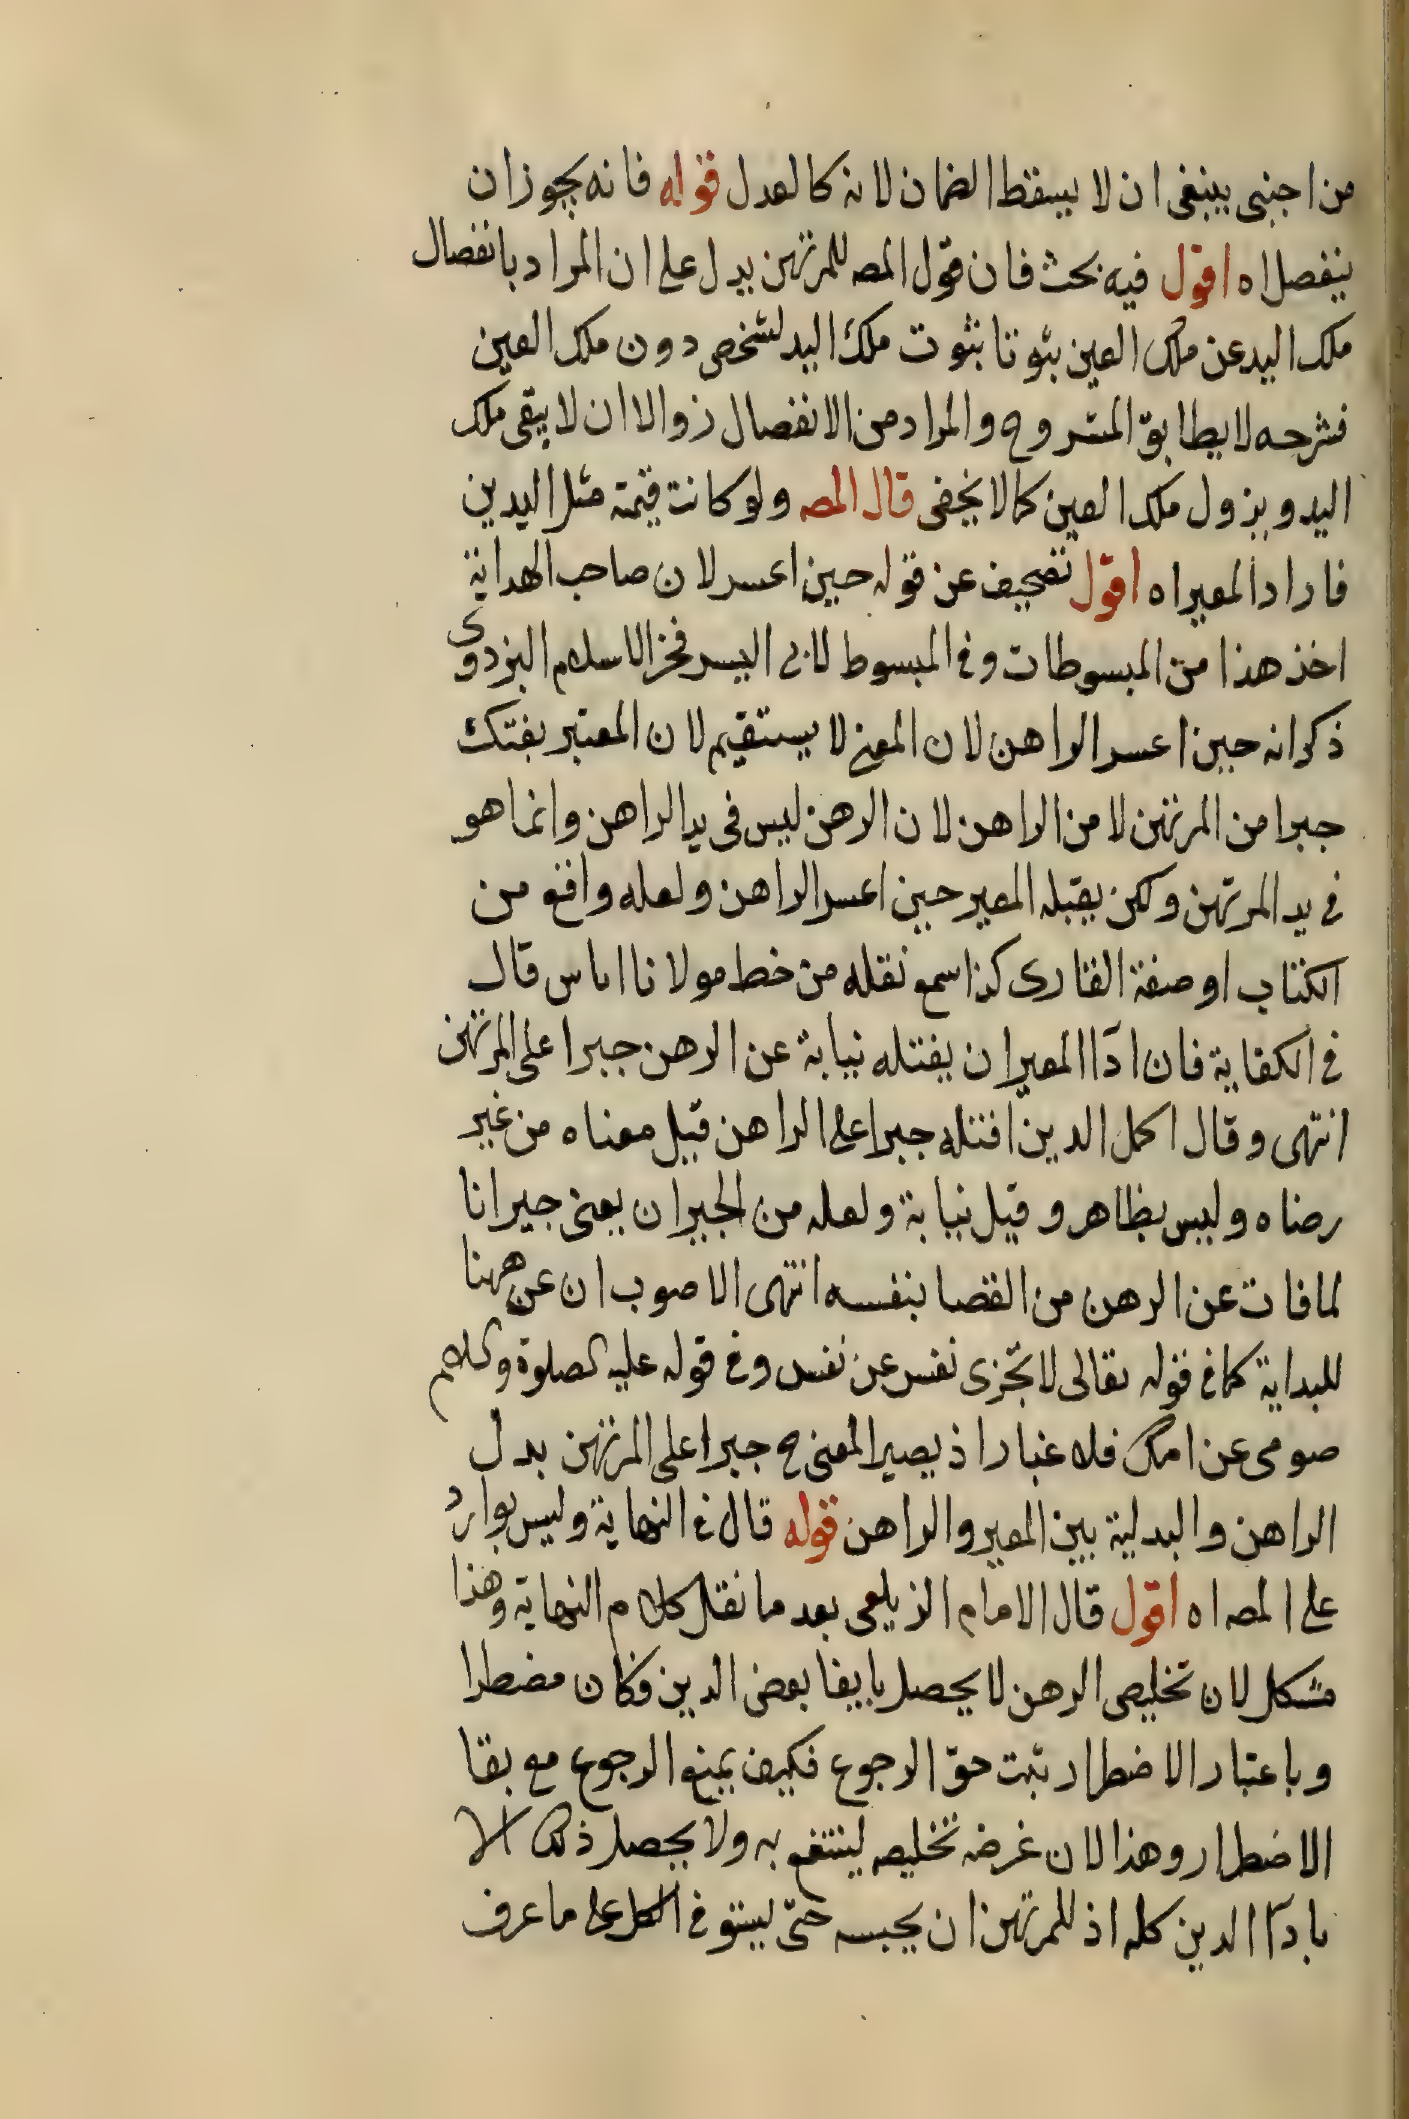 من اجنبى ينبغى ان لا يسقط الضمان لانه كالعدل قوله فانه يجوز ان
ينفصل اه اقول فيه بحث فان قول المصه للمرتهن يدل على ان المراد بانفصال
ملك اليد عن ملك العين ثبوتا ثبوت ملك اليد لشخص دون ملك العين
فشرحه لا يطابق المشروح والمراد من الانفصال زوالا ان لا يبقى ملك
اليد ويزول ملك العين كما لا يخفى قال المصه ولو كانت قيمته مثل الدين
فاراد المعير اه اقول تصحيف عن قوله حين اعسر لان صاحب الهداية
اخذ هذا من المبسوطات وفى المبسوط لابى اليسر فخر الاسلام البزدوى
ذكر انه حين اعسر الراهن لان المعنى لا يستقيم لان المعير يفتك
جبرا من المرتهن لا من الراهن لان الرهن ليس فى يد الراهن وانما هو
فى يد المرتهن ولكن يقبله المعير حين اعسر الراهن ولعله واقع من
الكتاب او صفة القارى كذا سمع نقله من خط مولانا اياس قال
فى الكفاية فان ادآ المعير ان يفتكه نيابة عن الرهن جبرا على المرتهن
انتهى وقال اكمل الدين افتكه جبرا على الراهن قيل معناه من غير
رضاه وليس بظاهر وقيل نيابة ولعله من الجبران يعنى جبرانا
لما فات عن الرهن من القضا بنفسه انتهى الاصوب ان عن ههنا
للبداية كما فى قوله تعالى لا تجزى نفس عن نفس وفى قوله عليه الصلوة والسلام
صومى عن امك فلا غبار اذ يصير المعنى ح جبرا على المرتهن بدل
الراهن والبدلية بين المعير والراهن قوله قال فى النهاية وليس بوارد
على المصه اه اقول قال الامام الزيلعى بعد ما نقل كلام النهاية وهذا
مشكل لان تخليص الرهن لا يحصل بايفا بعض الدين فكان مضطرا
وباعتبار الاضطرار ثبت حق الرجوع فكيف يمنع الرجوع مع بقا
الاضطرار وهذا لان غرضه تخليصه لينتفع به ولا يحصل ذلك الا
بادآ الدين كله اذ للمرتهن ان يحبسه حتى يستوفى الكل على ما عرف